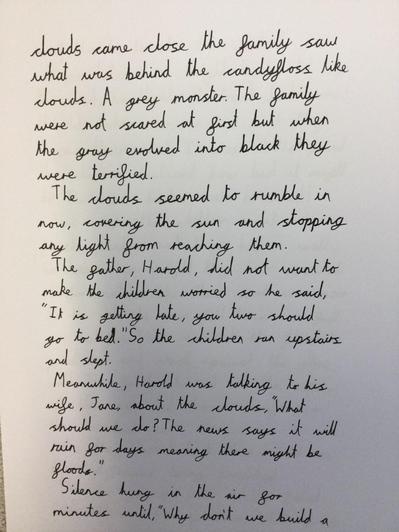 clouds came close the family saw
what was behind the candyfloss like
clouds. A grey monster. The family
were not scared at first but when
the gray evolved into black they
were terrified.
The clouds seemed to rumble in
now, covering the sun and stopping
any light from reaching them.
The father, Harold, did not want to
make the children worried so he said,
"It is getting late, you two should
go to bed." So the children ran upstairs
and slept.
Meanwhile, Harold was talking to his
wife, Jane, about the clouds, "What
should we do? The news says it will
rain for days meaning there might be
floods."
Silence hung in the air for
minutes until, "Why don't we build a